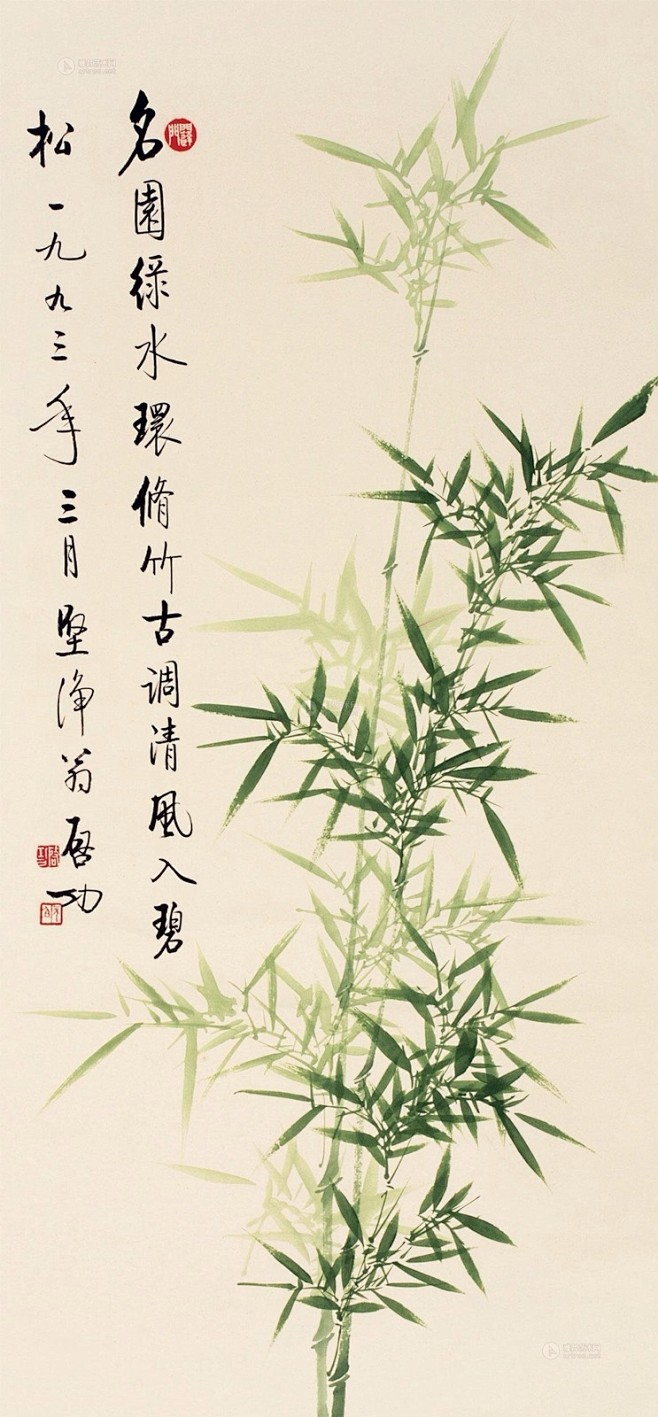 名園綠水環脩竹古调清風入碧
松一九九三年三月堅淨翁启功